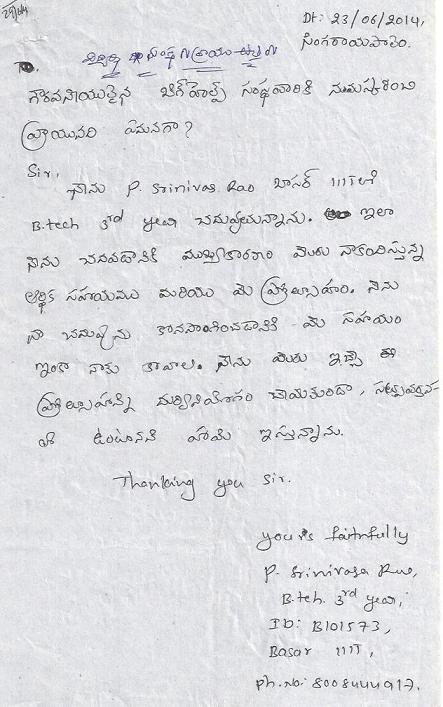 Dt: 23/06/2014,
సింగరాయపాలెం.
గౌరవనీయులైన బిగ్‌హెల్ప్ సంస్థవారికి నమస్కరించి
వ్రాయునది ఏమనగా?
Sir,
నేను P. Srinivas Rao బాసర్ IIITలో
B.tech 3rd year చదువుచున్నాను. ఇలా
నేను చదవడానికి ముఖ్యకారణం మీరు నాకందిస్తున్న
ఆర్థిక సహాయము మరియు మీ ప్రోత్సాహం. నేను
నా చదువును కొనసాగించడానికి మీ సహాయం
ఇంకా నాకు కావాలి. నేను మీరు ఇచ్చే ఈ
ప్రోత్సాహాన్ని దుర్వినియోగం చేయకుండా, సత్ప్రవర్తన-
తో ఉంటానని హామీ ఇస్తున్నాను.
Thanking you Sir.
yours faithfully
P. Srinivasa Rao,
B.teh. 3rd year,
ID: B101573,
Basar IIIT,
Ph.No: 8008444917.